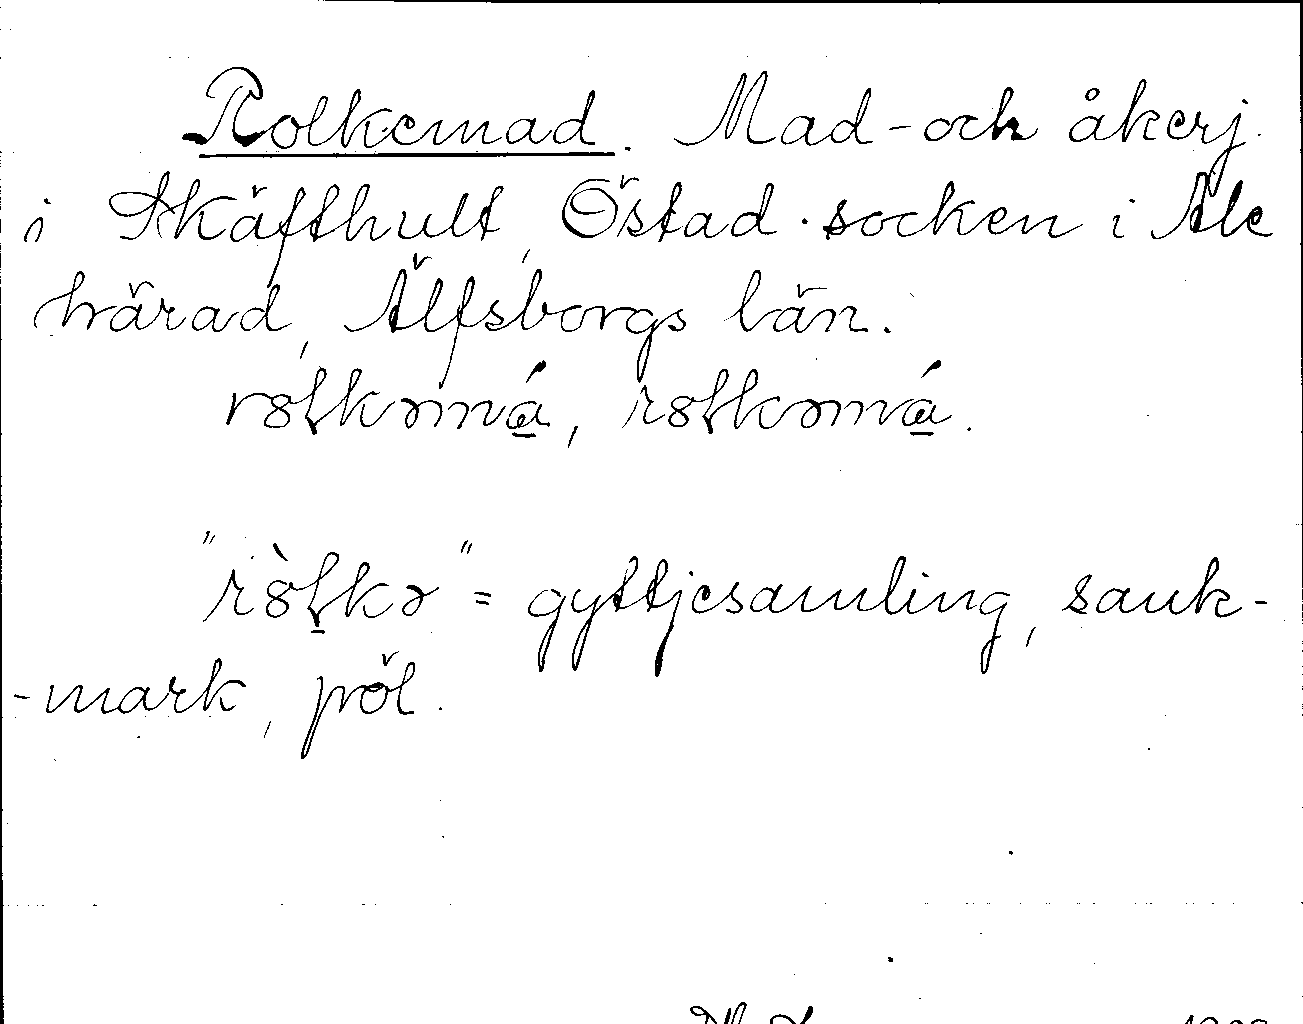 Rolkemad. Mad- och åkerj.
i Skäfthult, Östad socken i Ale
härad, Älfsborgs län.
rolkəmá, rolkəmá.
"ròlkə" = gyttjesamling, sank-
-mark, pöl.